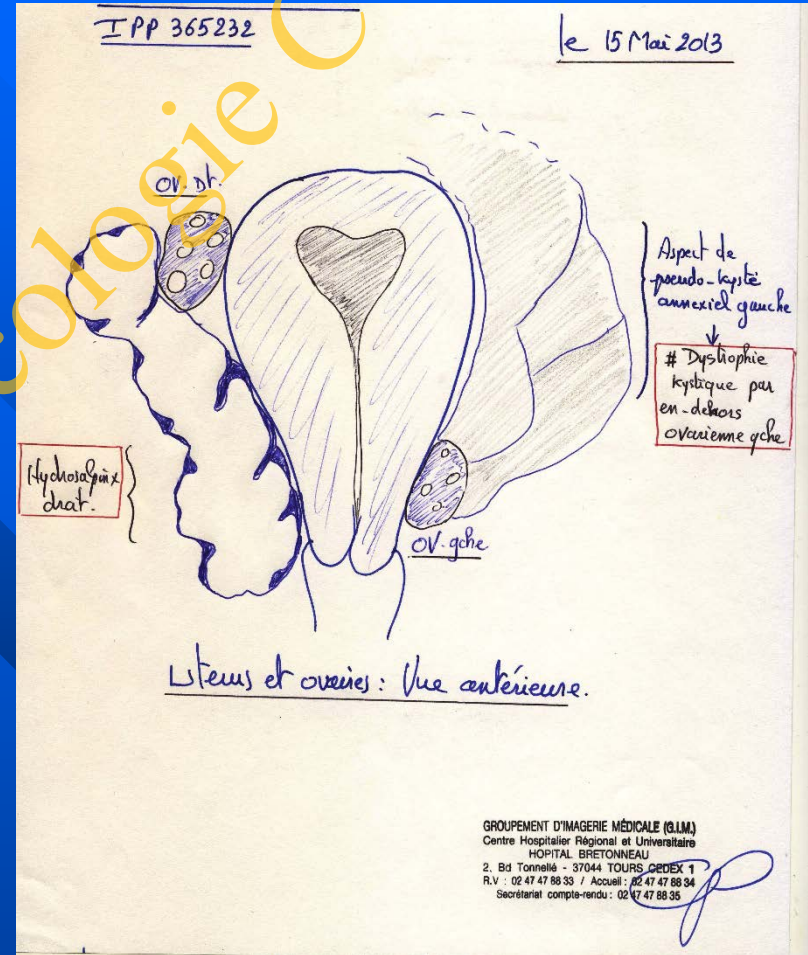 IPP 365232
le 15 Mai 2013
ologie C
OV. Dt.
Aspect de
pseudo-kyste
annexiel gauche
# Dystrophie
kystique par
en-dehors
ovarienne gche
Hydrosalpinx
droit.
OV. gche
Uterus et ovaires : Vue antérieure.
GROUPEMENT D'IMAGERIE MÉDICALE (G.I.M.)
Centre Hospitalier Régional et Universitaire
HOPITAL BRETONNEAU
2, Bd Tonnellé - 37044 TOURS CEDEX 1
R.V : 02 47 47 88 33 / Accueil : 02 47 47 88 34
Secrétariat compte-rendu : 02 47 47 88 35